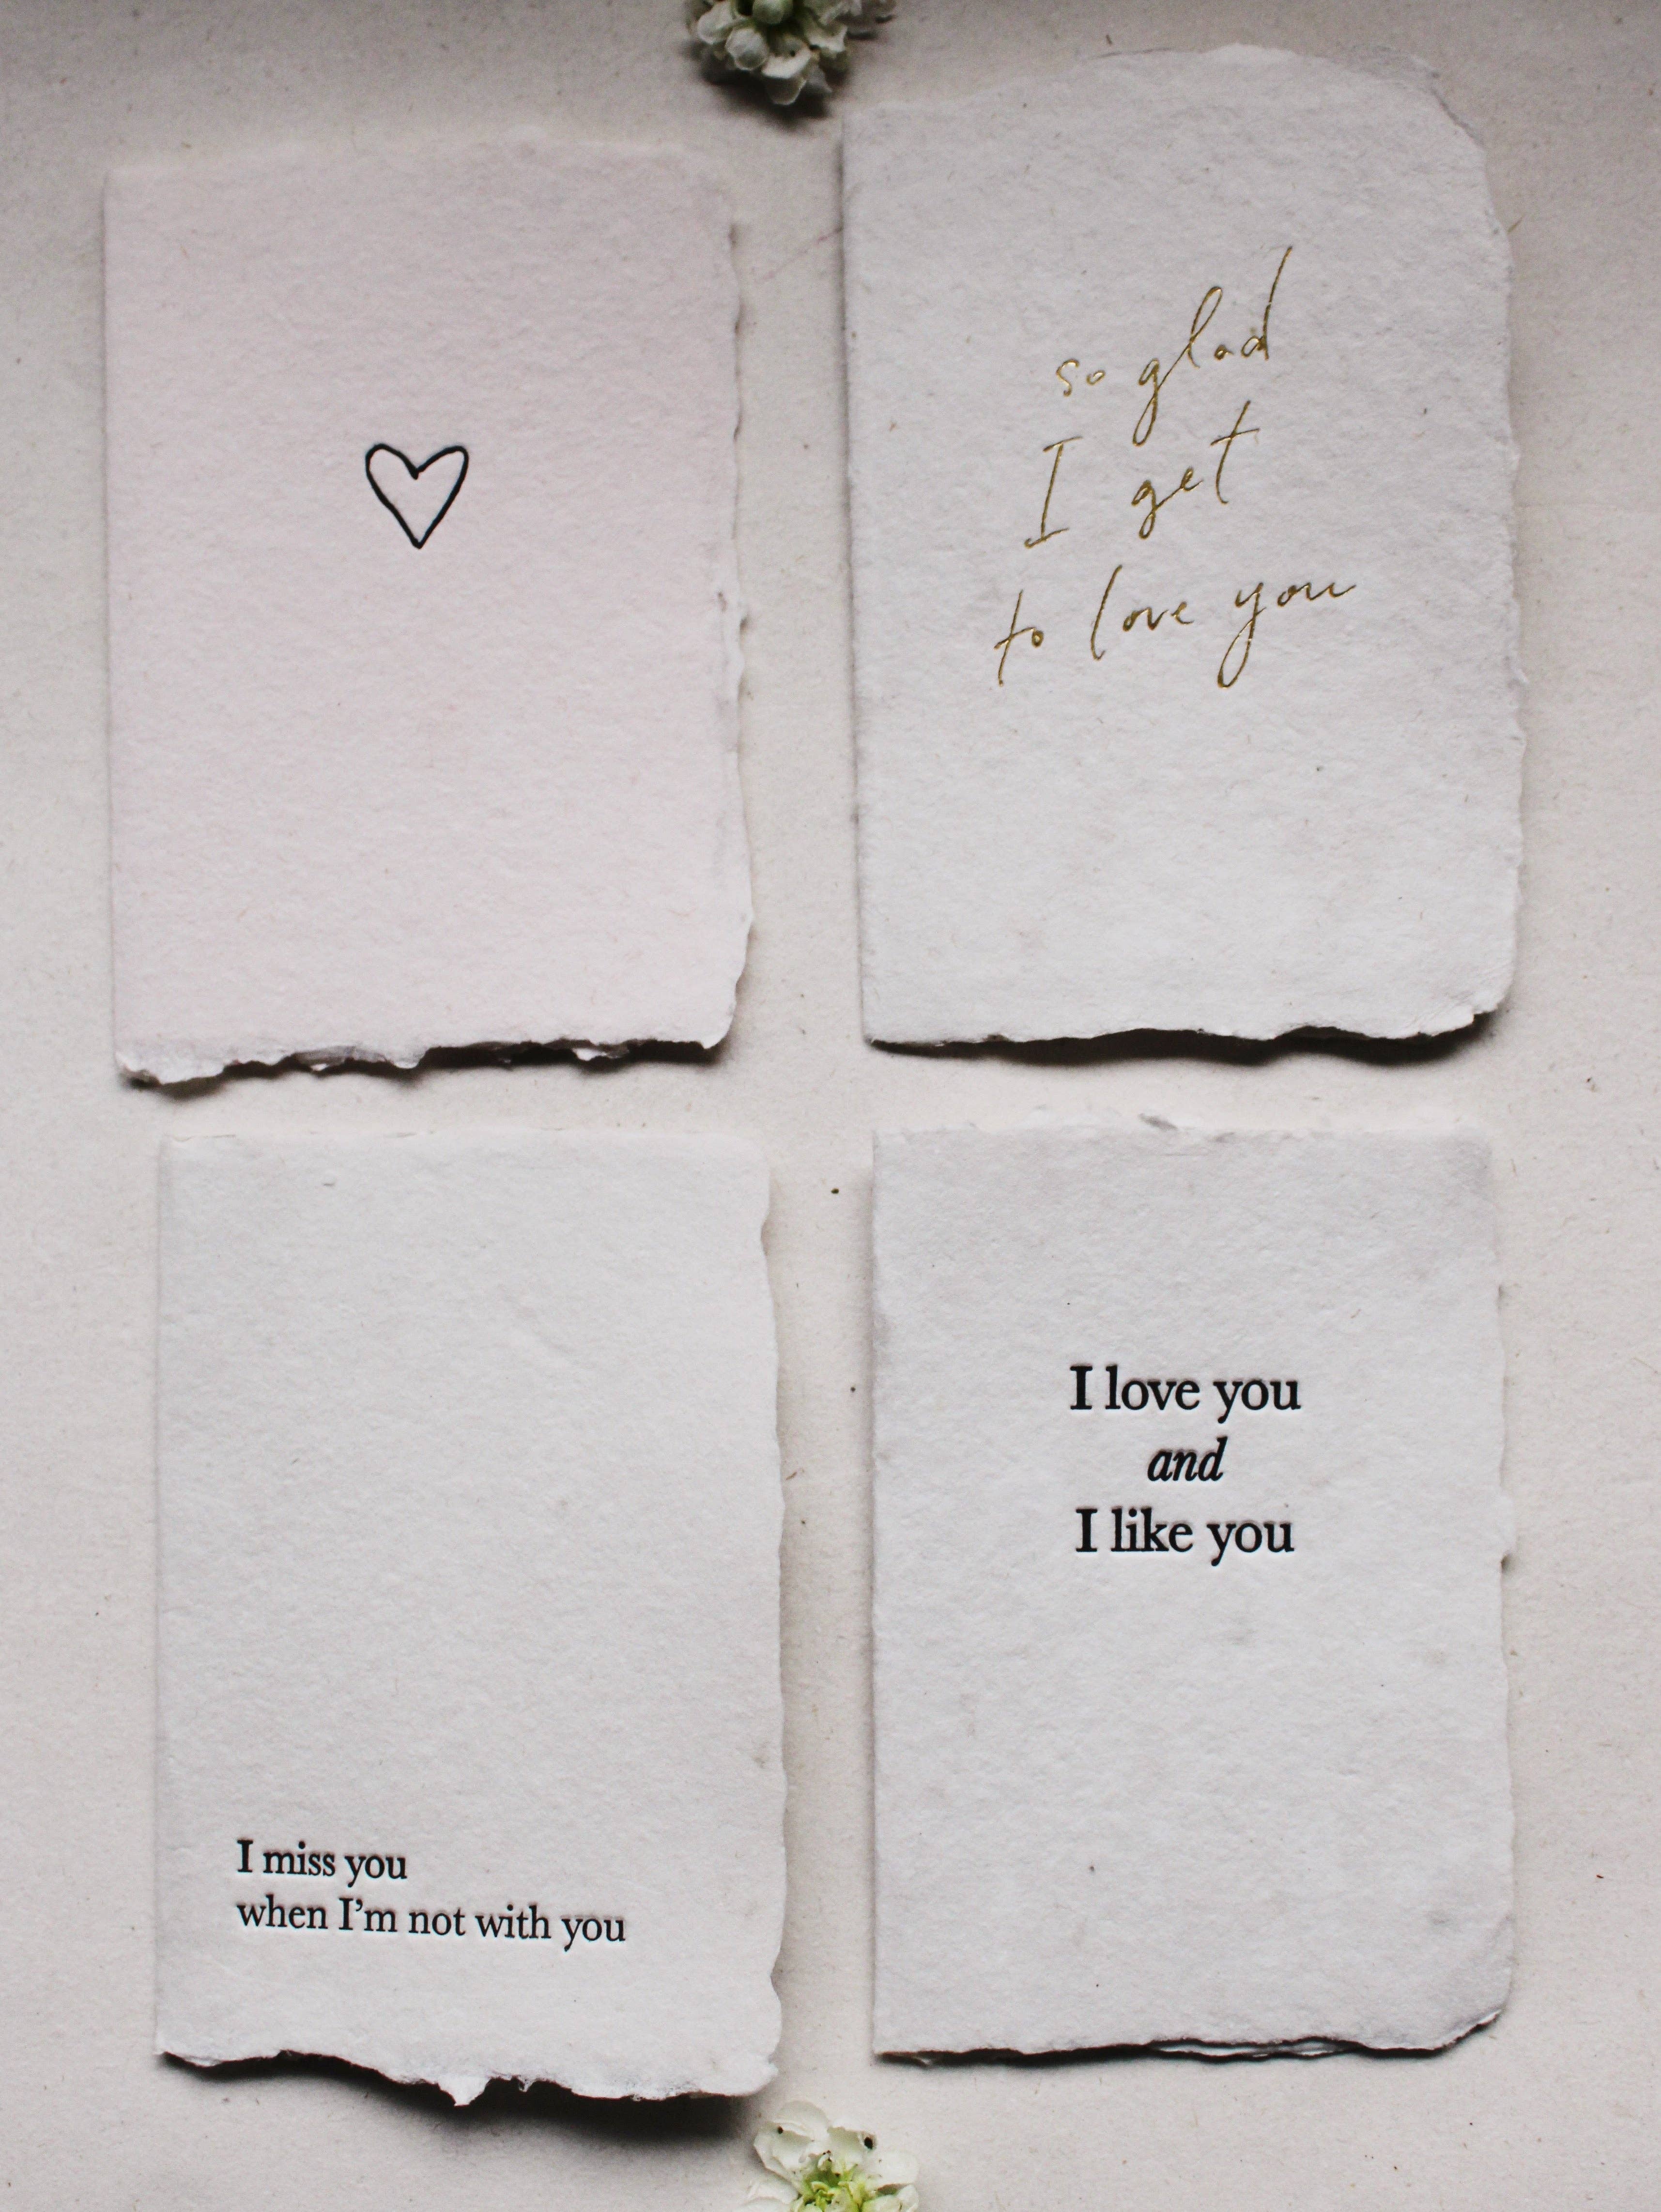 so glad
I get
to love you
I miss you
when I’m not with you
I love you
and
I like you